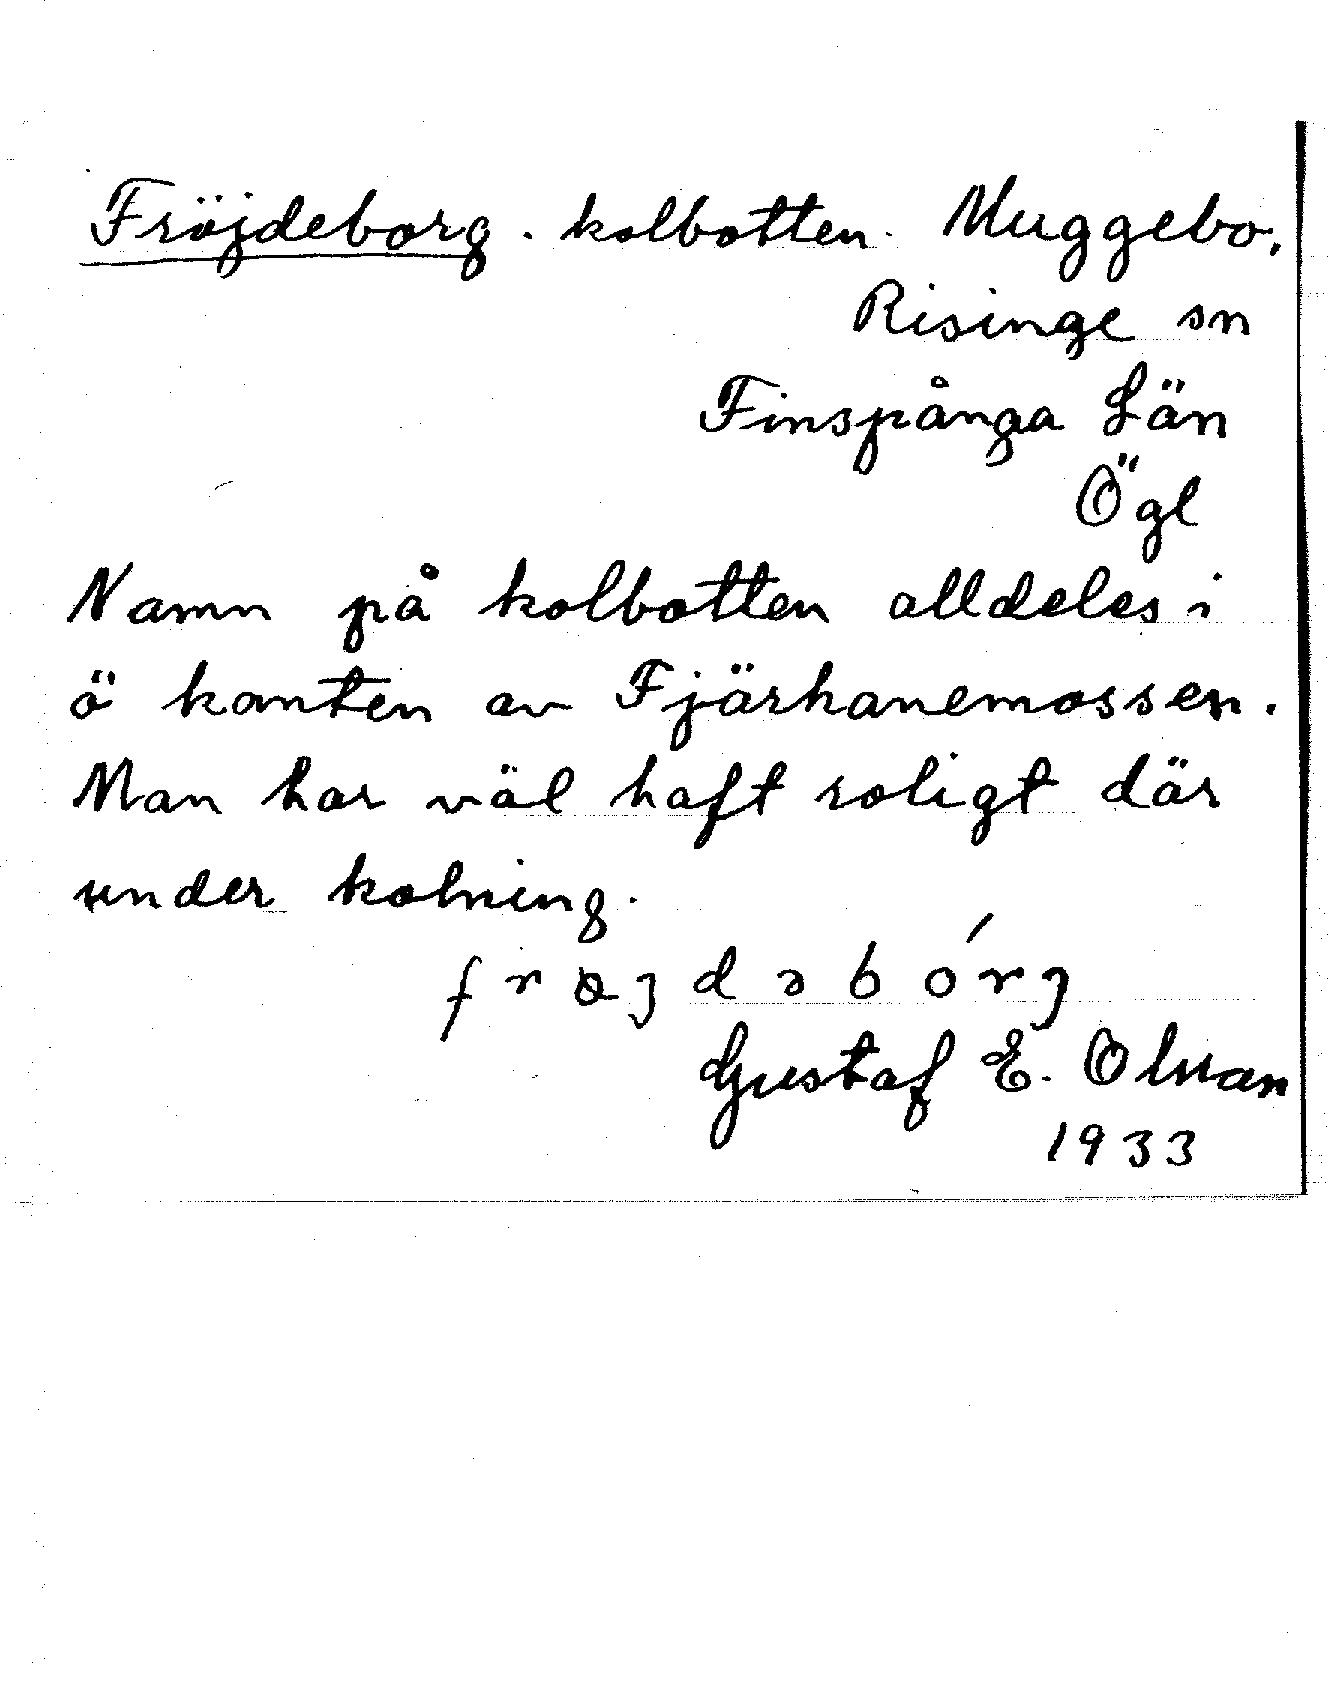 Fröjdeborg. kolbotten. Muggebo,
Risinge sn
Finspånga Län
Ögl
Namn på kolbotten alldeles i
ö kanten av Fjärhanemossen.
Man har väl haft roligt där
under kolning.
frøjdəbórj
Gustaf E. Olsson
1933